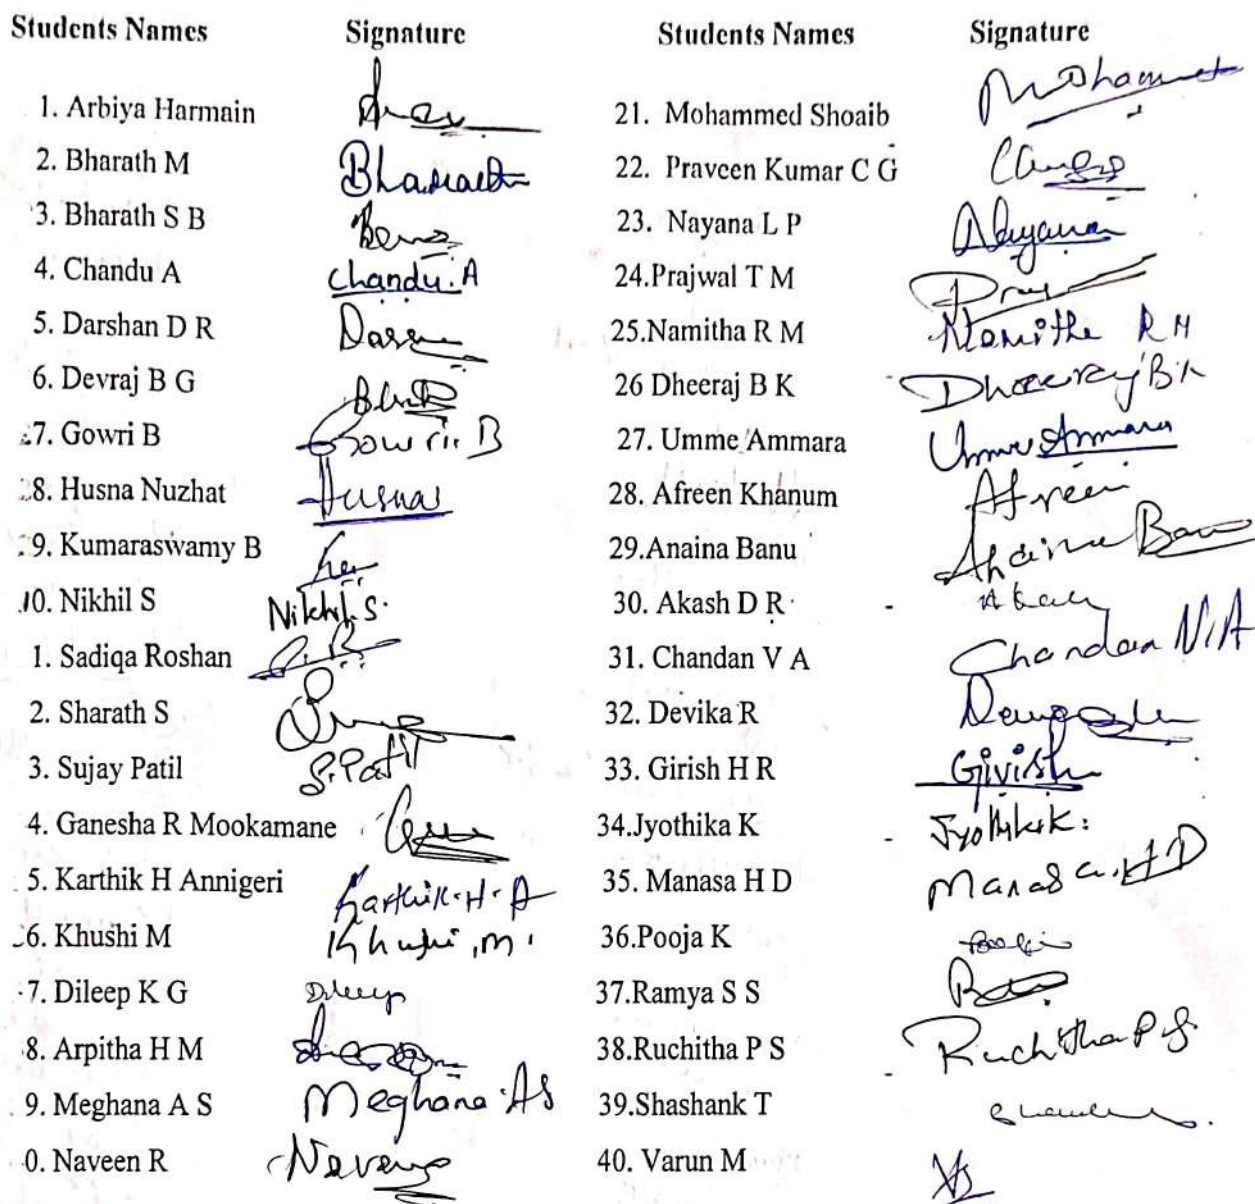 Students Names Signature
1. Arbiya Harmain
2. Bharath M Bharath
3. Bharath S B
4. Chandu A Chandu.A
5. Darshan D R
6. Devraj B G
7. Gowri B Gowri. B
8. Husna Nuzhat Husna
9. Kumaraswamy B
10. Nikhil S Nikhil.S.
1. Sadiqa Roshan
2. Sharath S
3. Sujay Patil S.Patil
4. Ganesha R Mookamane
5. Karthik H Annigeri Karthik.H.A
6. Khushi M Khushi.M.
7. Dileep K G Dileep
8. Arpitha H M
9. Meghana A S Meghana.AS
0. Naveen R
Students Names Signature
21. Mohammed Shoaib Mohammed
22. Praveen Kumar C G
23. Nayana L P Nayana
24.Prajwal T M
25.Namitha R M Namitha R M
26 Dheeraj B K Dheeraj B K
27. Umme Ammara Umme Ammara
28. Afreen Khanum Afreen
29.Anaina Banu Anaina Banu
30. Akash D R
31. Chandan V A Chandan V.A
32. Devika R
33. Girish H R Girish
34.Jyothika K Jyothika K.
35. Manasa H D Manasa.H D
36.Pooja K
37.Ramya S S
38.Ruchitha P S Ruchitha P S
39.Shashank T
40. Varun M